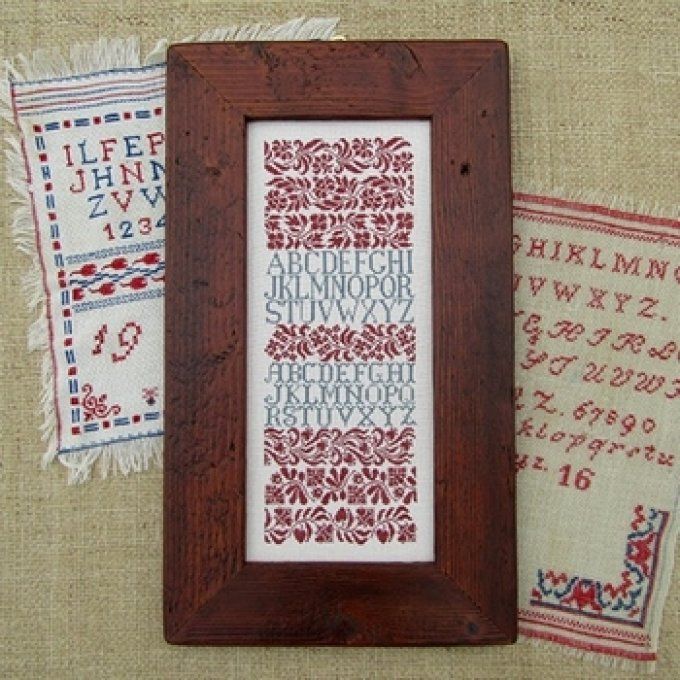 ILFEF
JHNN
ZVW
1234
19
ABCDEFGHI
JKLMNOPQR
STUVWXYZ
ABCDEFGHI
JKLMNOPQ
RSTUVXYZ
GHIKLMNO
UVWXYZ.
HIKL
STUVW
Z. 67890
klopqrstu
yz. 16